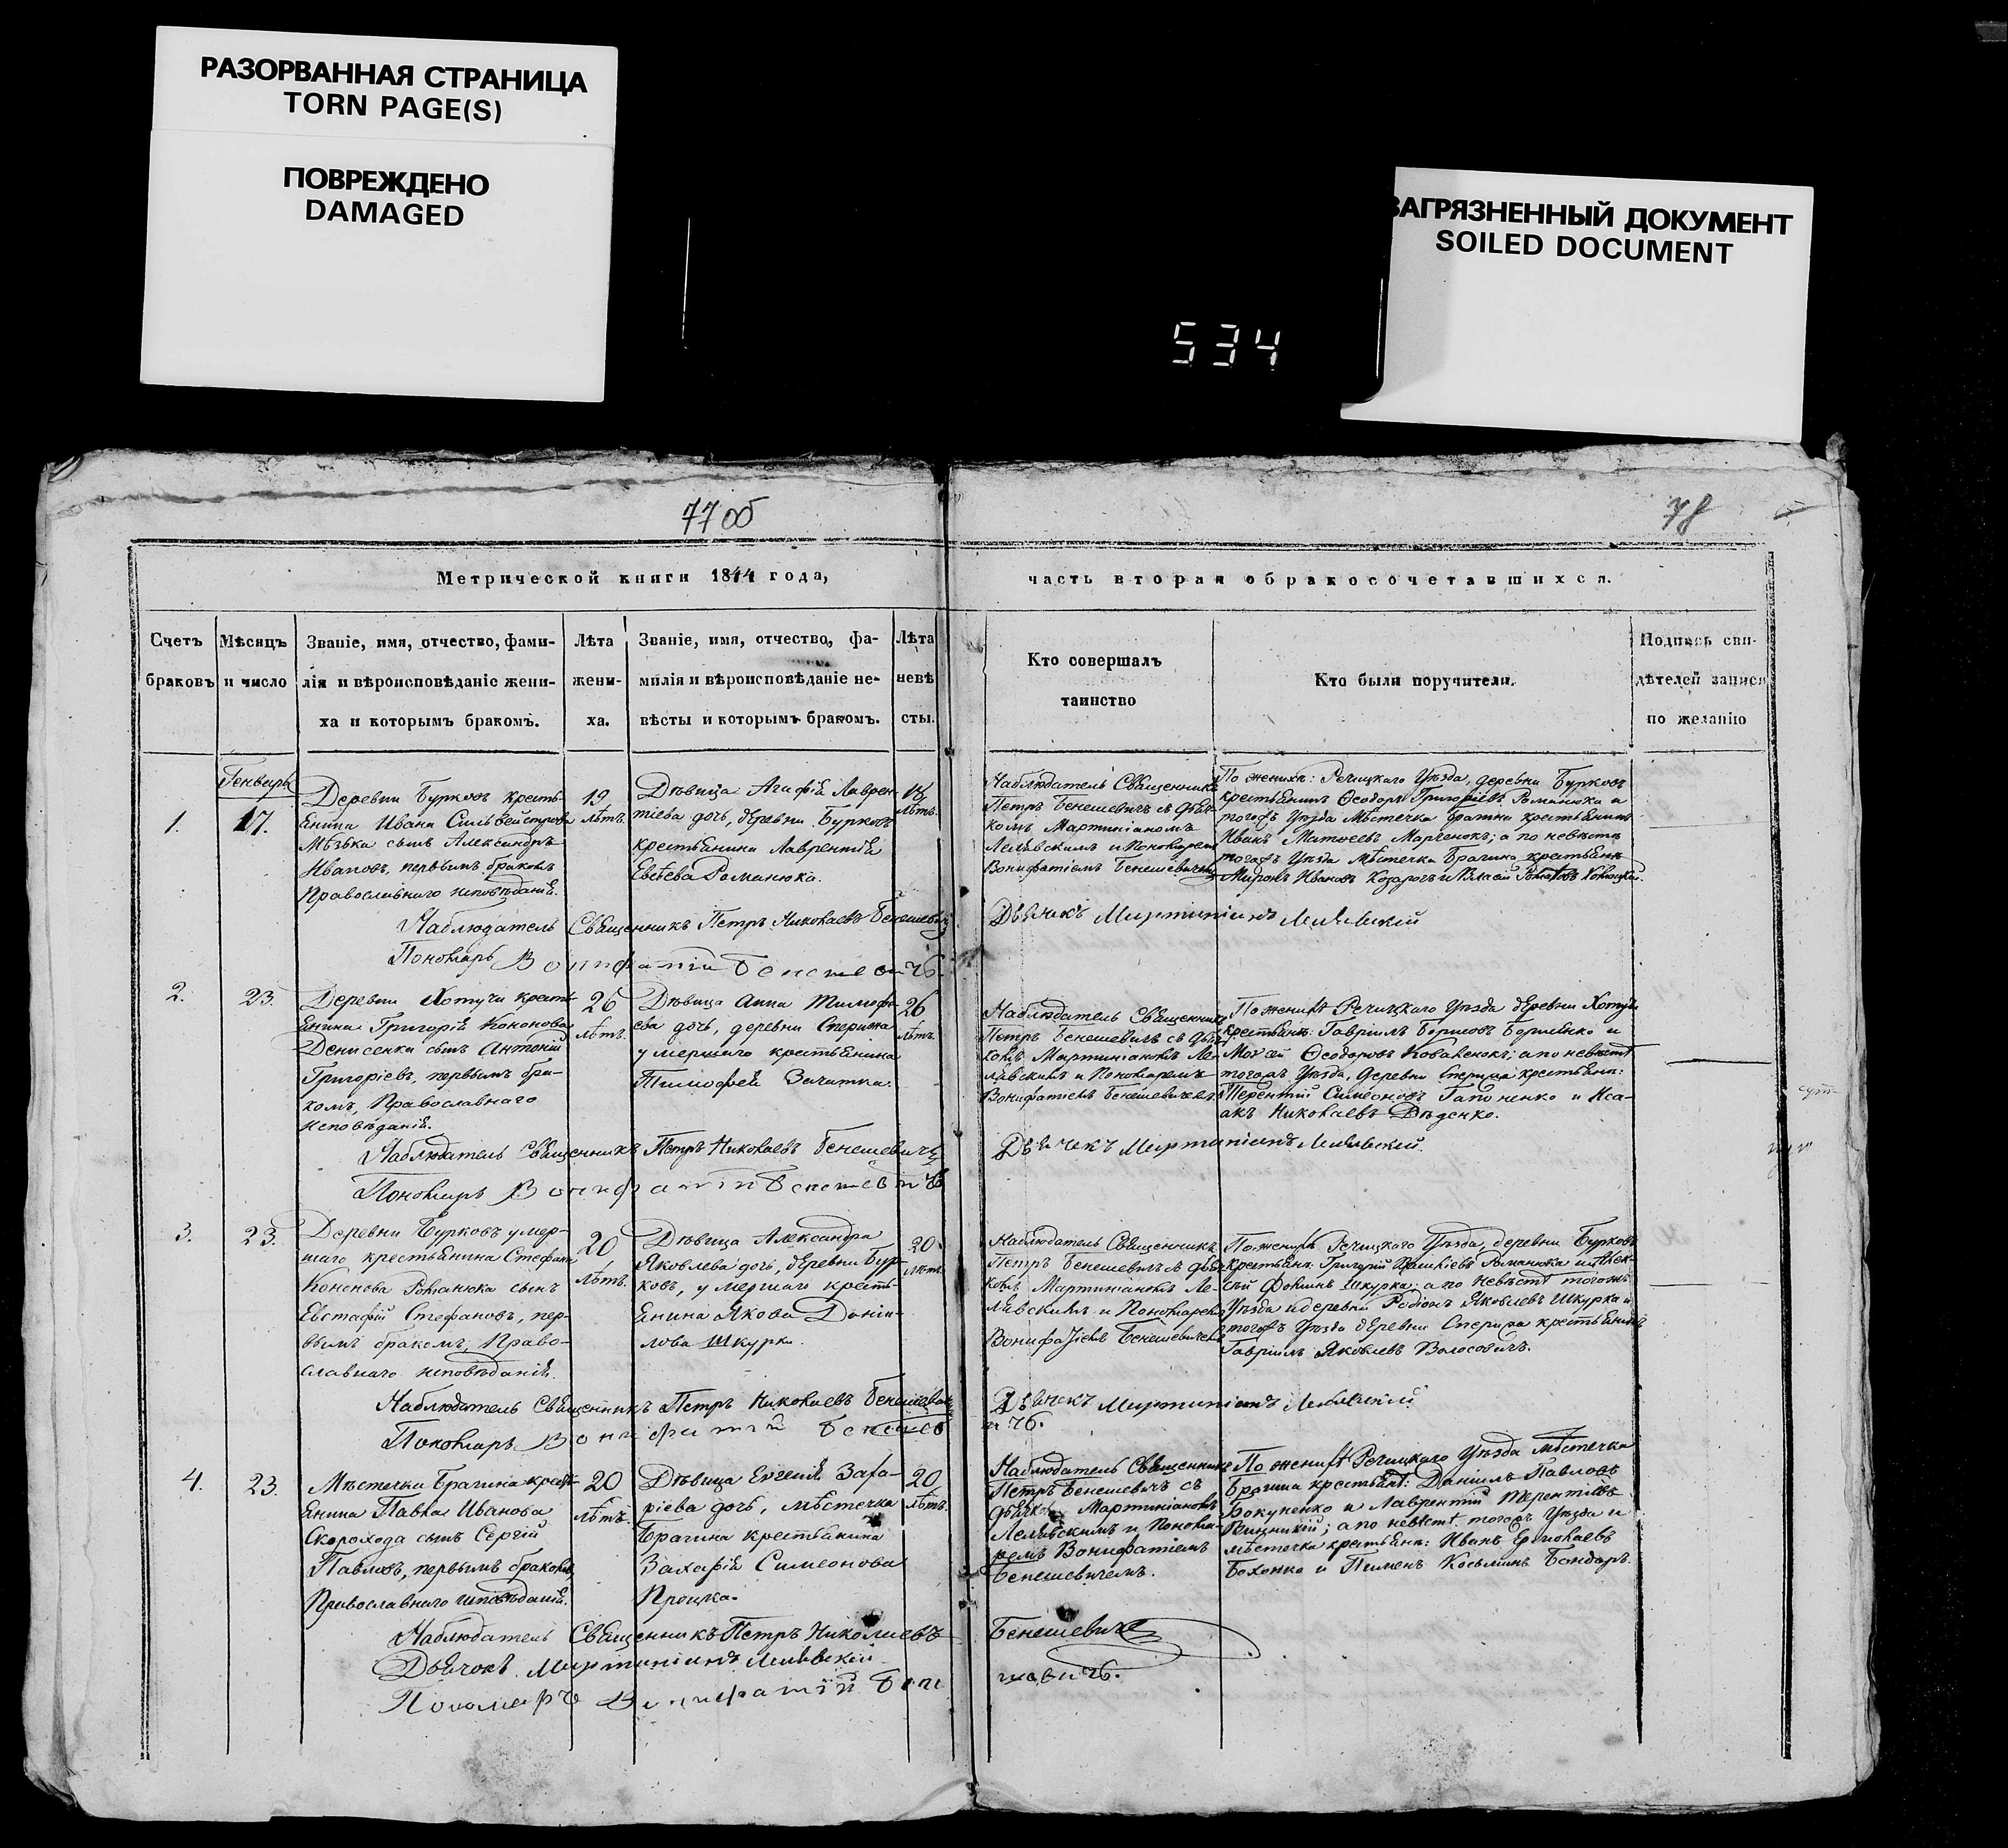 РАЗОРВАННАЯ СТРАНИЦА
TORN PAGE(S)
ПОВРЕЖДЕНО
DAMAGED
ЗАГРЯЗНЕННЫЙ ДОКУМЕНТ
SOILED DOCUMENT
534
77 об
78
Метрической книги 1844 года,
часть вторая о бракосочетавшихся.
Счетъ
браковъ
Мѣсяцъ
и число
Званіе, имя, отчество, фами-
лія и вѣроисповѣданіе жени-
ха и которымъ бракомъ.
Лѣта
жени-
ха.
Званіе, имя, отчество, фа-
милія и вѣроисповѣданіе не-
вѣсты и которымъ бракомъ.
Лѣта
невѣ
сты.
Кто совершалъ
таинство
Кто были поручители.
Подпись сви-
дѣтелей записи
по желанію
Генварь
1.
17.
Деревни Бурковъ кресть-
янина Ивана Сильвейстрова
сынъ Александръ
Ивановъ, первымъ бракомъ
Православнаго исповѣданія.
19
лѣтъ.
Дѣвица Агафія Лаврен
тіева дочь, деревни Бурковъ
крестьянина Лаврентія
Романюка.
лѣтъ.
Наблюдатель Священникъ
Петръ Бенешевичъ съ дьяч
комъ Мартиніаномъ
Лелявскимъ и Пономаремъ
Вонифатіемъ Бенешевичемъ
По женихѣ: Речицкаго Уѣзда, деревни Бурковъ
крестьянинъ Ѳеодоръ Григоріевъ Романюка и
тогожъ Уѣзда Мѣстечка Брагина крестьянинъ
Иванъ Матѳеевъ Марченокъ; а по невѣстѣ
тогожъ Уѣзда Мѣстечка Брагина крестьян:
Миронъ Ивановъ и Власій
Наблюдатель Священникъ Петръ Николаевъ Бенешевичъ
Дьячекъ Мартиніанъ Лелявскій
Пономарь Вонифатій Бенешевичъ.
2.
23.
Деревни Хотучи кресть-
янина Григорія Кононова
Денисенки сынъ Антоній
Григоріевъ, первымъ бра-
комъ, Православнаго
исповѣданія.
26
лѣтъ.
Дѣвица Анна Тимофе
ева дочь, деревни Сперижа
умершаго крестьянина
Тимофея
26
лѣтъ.
Наблюдатель Священникъ
Петръ Бенешевичъ съ дьяч
комъ Мартиніаномъ Ле-
лявскимъ и Пономаремъ
Вонифатіемъ Бенешевичемъ
По женихѣ Речицкаго Уѣзда деревни Хотучи
крестьян: Гавріилъ Борисовъ и
Моѵсей Ѳеодоровъ Коваленокъ; а по невѣстѣ
тогожъ Уѣзда, деревни Сперижа крестьян:
Терентій Симеоновъ Гапоненко и Иса-
акъ Николаевъ Дѣденко.
Наблюдатель Священникъ Петръ Николаевъ Бенешевичъ
Дьячекъ Мартиніанъ Лелявскій.
Пономарь Вонифатій Бенешевичъ
3.
23.
Деревни Бурковъ умер-
шаго крестьянина Стефана
Кононова Романюка сынъ
Евстафій Стефановъ, пер-
вымъ бракомъ, Право-
славнаго исповѣданія.
20
лѣтъ.
Дѣвица Александра
Яковлева дочь, деревни Бур-
ковъ, умершаго кресть-
янина Якова Даніи-
лова Шкурки.
20
лѣтъ.
Наблюдатель Священникъ
Петръ Бенешевичъ съ дьяч
комъ Мартиніаномъ Ле-
лявскимъ и Пономаремъ
Вонифатіемъ Бенешевичемъ
По женихѣ Речицкаго Уѣзда, деревни Бурковъ
крестьян: Григорій Романюка и Алек-
сѣй Фоминъ Шкурка; а по невѣстѣ тогожъ
Уѣзда и деревни Родіонъ Яковлевъ Шкурка и
тогожъ Уѣзда деревни Сперижа крестьянинъ
Гавріилъ Яковлевъ Волосовичъ.
Наблюдатель Священникъ Петръ Николаевъ Бенешевичъ
Дьячекъ Мартиніанъ Лелявскій
Пономарь Вонифатій Бенешев
ичъ.
4.
23.
Мѣстечка Брагина кресть-
янина Павла Иванова
Скорохода сынъ Сергій
Павловъ, первымъ бракомъ,
Православнаго исповѣданія.
20
лѣтъ.
Дѣвица Евгенія Заха-
ріева дочь, мѣстечка
Брагина крестьянина
Захарія Симеонова
Процка.
20
лѣтъ.
Наблюдатель Священникъ
Петръ Бенешевичъ съ
дьячкомъ Мартиніаномъ
Лелявскимъ и Понома-
ремъ Вонифатіемъ
Бенешевичемъ.
По женихѣ Речицкаго Уѣзда мѣстечка
Брагина крестьян: Даніилъ Павловъ
Бокуненко и Лаврентій Терентіевъ
а по невѣстѣ тогожъ Уѣзда и
мѣстечка крестьян: Иванъ Ермолаевъ
Бохонко и Пименъ Косьминъ Бондарь.
Наблюдатель Священникъ Петръ Николаевъ
Бенешевичъ
Дьячокъ Мартиніанъ Лелявскій
Пономарь Вонифатій Бене
шевичъ.